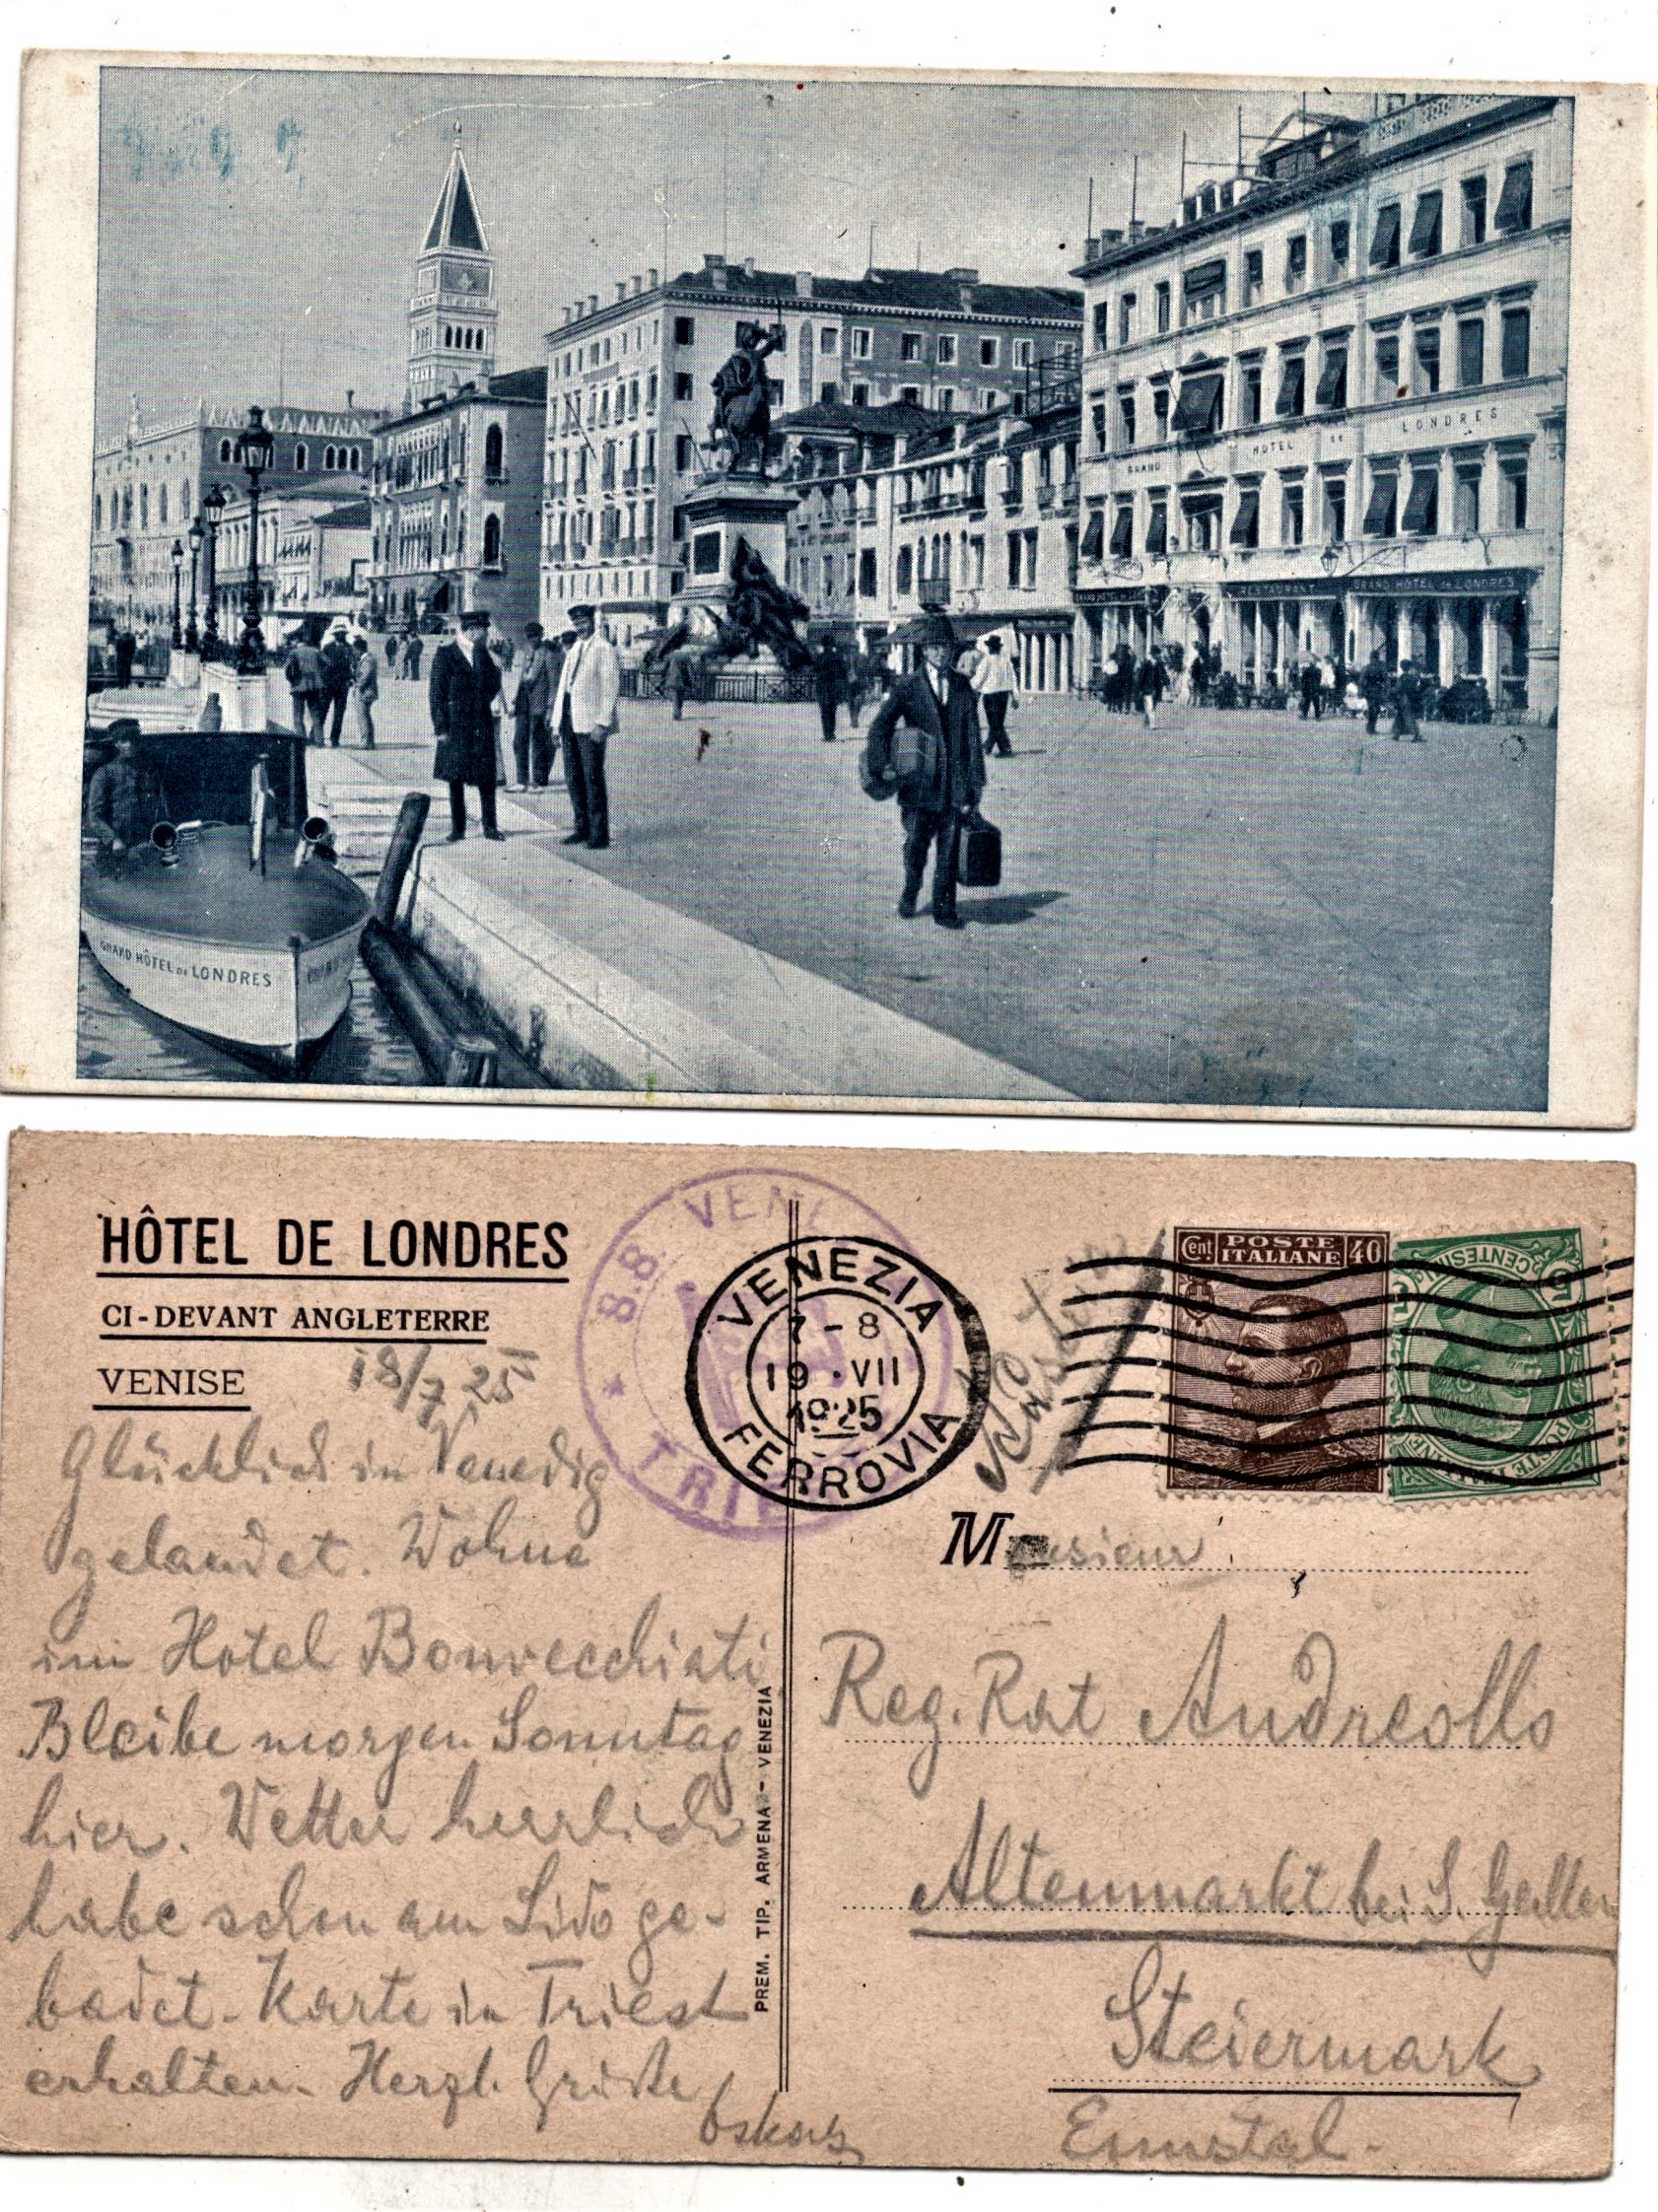 GRAND HOTEL DE LONDRES
RESTAURANT GRAND HOTEL DE LONDRES
GRAND HÔTEL DE LONDRES
HÔTEL DE LONDRES
CI-DEVANT ANGLETERRE
VENISE
18/7 25
Glücklich in Venedig
gelandet. Wohne
im Hotel Bonvecchiati
Bleibe morgen Sonntag
hier. Wetter herrlich
habe schon am Lido ge-
badet. Karte in Triest
erhalten. Herzl. Grüße
Oskar
PREM. TIP. ARMENA - VENEZIA
S.S. VENE
TRIE
VENEZIA
7-8
19.VII
1925
FERROVIA
Cent POSTE 40
ITALIANE
5 CENTESIMI 5
POSTE ITALIANE
Austria
Monsieur
Reg. Rat Andreollo
Altenmarkt bei S. Gallen
Steiermark
Ennstal.